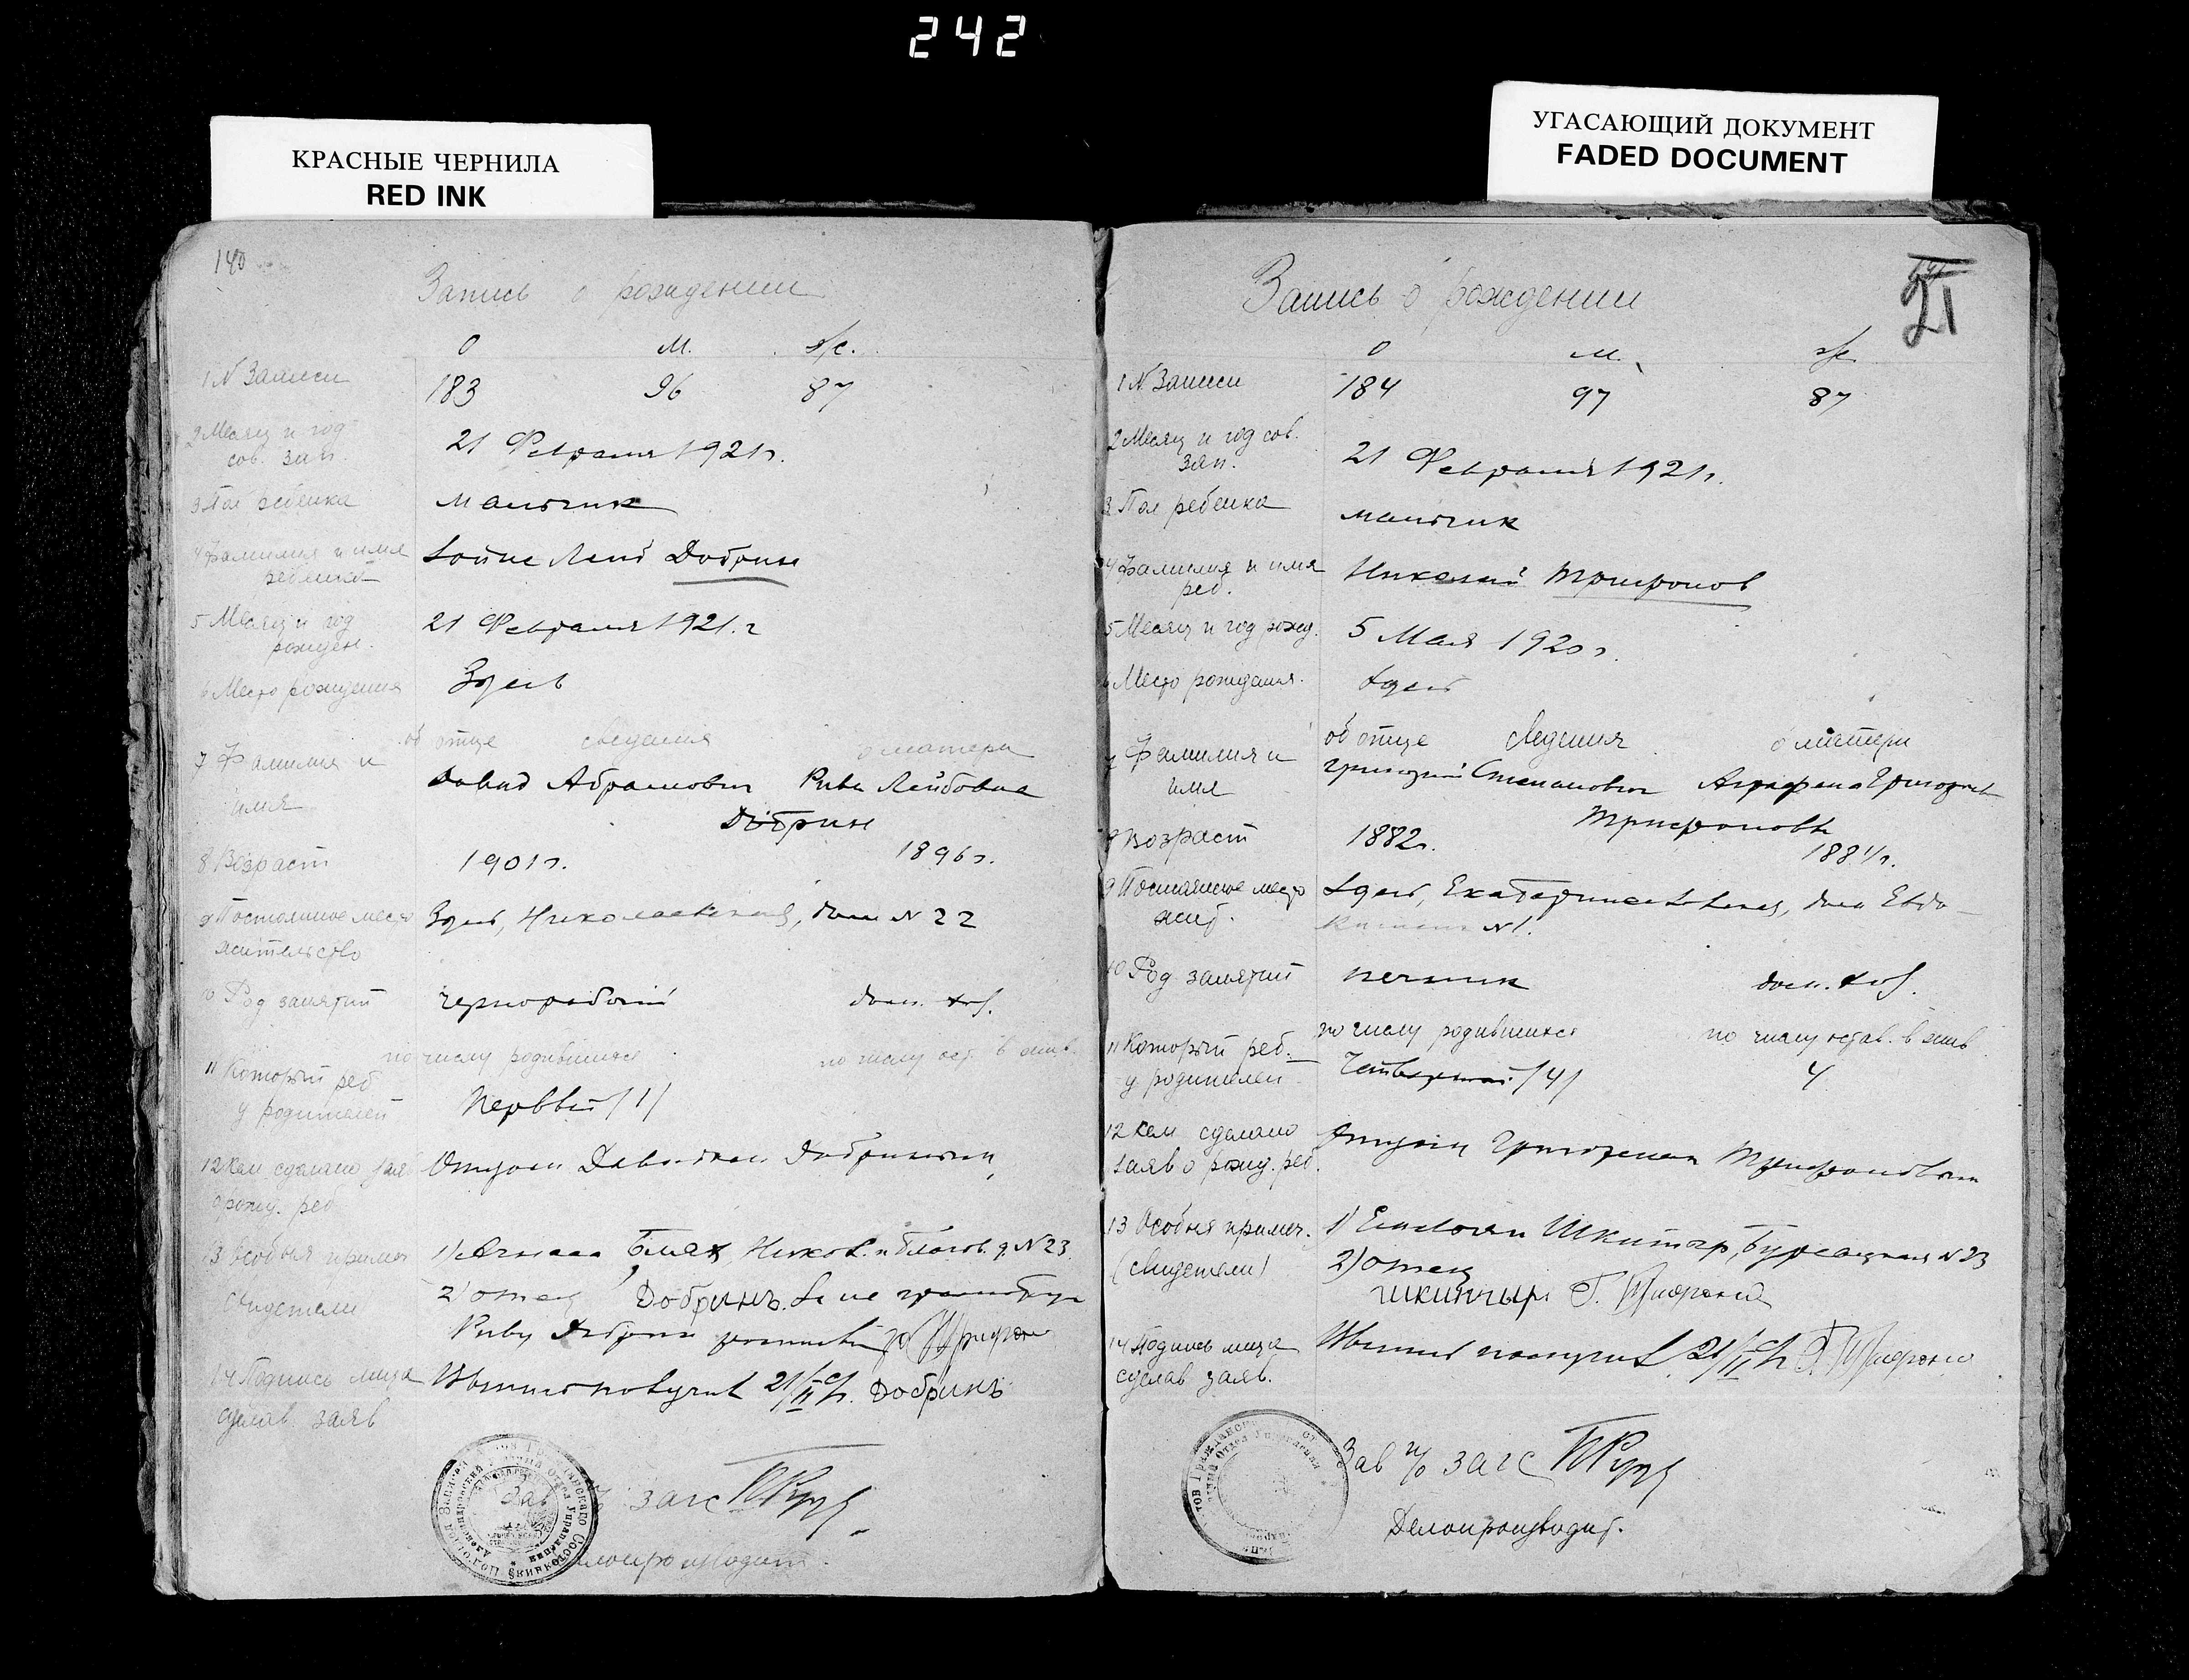 242
КРАСНЫЕ ЧЕРНИЛА
RED INK
УГАСАЮЩИЙ ДОКУМЕНТ
FADED DOCUMENT
140
Запись о рождении
О М. ж/с.
1 N Записи 183 96 87
2 Месяц и год 21 Февраля 1921 г.
сов. зап.
3 Пол ребенка мальчик
4 Фамилия и имя Лейб Добрин
ребенка
5 Месяц и год 21 Февраля 1921. г
рожден.
6 Место рождения Здесь
об отце сведения о матери
7 Фамилия и Давид Абрамович Рива Лейбовна
имя Добрин
8 Возраст 1901 г. 1896 г.
9 Постоянное место Здесь, Николаевская, дом N 22
жительство
10 Род занятий чернорабочий дом. хоз.
по числу родившихся по числу ост. в жив.
11 Который реб Первый /1/
у родителей
12 Кем сделано заяв Отцом Давидом Добриным,
о рожд. реб
13 Особыя примеч 1) Блях, Никол. и д. N 23.
Свидетели 2) отец Добринъ. За не грамотную
Риву Добрин
14 Подпись лица получил 21/II Добринъ
сделав. заяв
Зав п/о загс
Делопроизводит.
21
Запись о рождении
О М. ж/с
1 N Записи 184 97 87
2 Месяц и год сов. 21 Февраля 1921 г.
зап.
3 Пол ребенка мальчик
4 Фамилия и имя Николай Трифонов
реб.
5 Месяц и год рожд. 5 Мая 1920 г.
6 Место рождения. Здесь
об отце сведения о матери
7 Фамилия и Григорий Степанович Аграфена Григорьев
имя Трифоновы
8 Возраст 1882 г. 1884 г.
9 Постоянное место Здесь, Екатериненская, дом Евдо-
жит. N 1.
10 Род занятий печник дом. хоз.
по числу родившихся по числу остав. в жив
11 Который реб. Четвертый /4/ 4
у родителей
12 Кем сделано Отцом Григорием Трифоновым
заяв о рожд. реб.
13 Особыя примеч. 1) Шкитыр, Бурсацкая N 23
(свидетели) 2) Отец
Г. Трифонов
14 Подпись лица получил 21/II Г. Трифонов
сделав заяв.
Зав п/о загс
Делопроизводит.